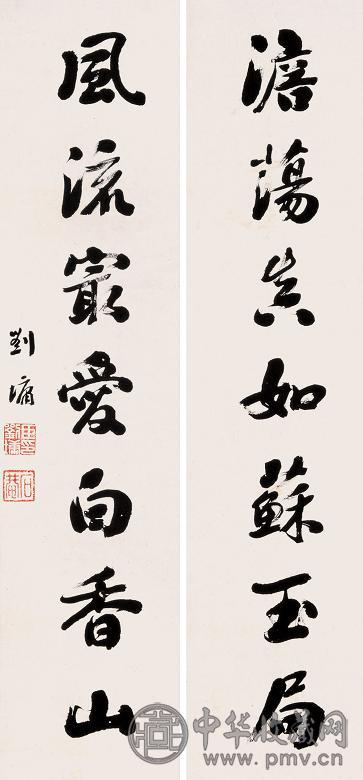 澹蕩真如蘇玉局
風流最愛白香山
劉墉
石菴
中华收藏网
www.pmv.cn